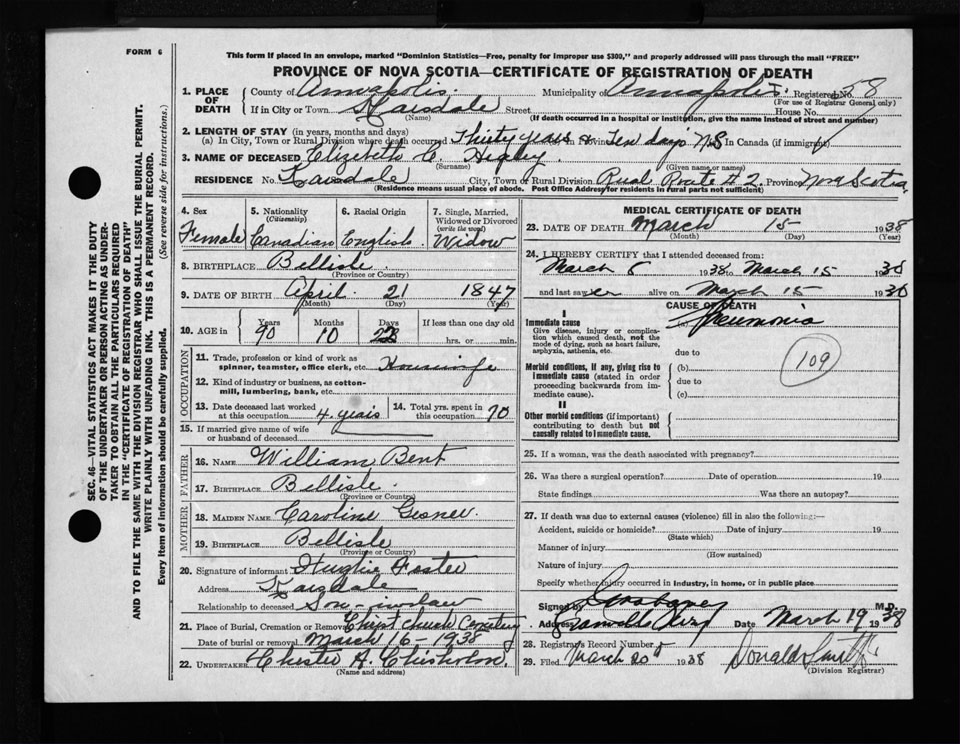 FORM 6
This form if placed in an envelope, marked "Dominion Statistics—Free, penalty for improper use $300," and properly addressed will pass through the mail "FREE"
PROVINCE OF NOVA SCOTIA—CERTIFICATE OF REGISTRATION OF DEATH
SEC. 46—VITAL STATISTICS ACT MAKES IT THE DUTY
OF THE UNDERTAKER OR PERSON ACTING AS UNDER-
TAKER TO OBTAIN ALL THE PARTICULARS REQUIRED
IN THE "CERTIFICATE OF REGISTRATION OF DEATH"
AND TO FILE THE SAME WITH THE DIVISION REGISTRAR WHO SHALL ISSUE THE BURIAL PERMIT.
WRITE PLAINLY WITH UNFADING INK. THIS IS A PERMANENT RECORD.
Every item of information should be carefully supplied. (See reverse side for instructions.)
1. PLACE OF DEATH County of Annapolis Municipality of Annapolis Registered No. 58
(For use of Registrar General only)
If in City or Town Karsdale Street House No.
(Name) (If death occurred in a hospital or institution, give the name instead of street and number)
2. LENGTH OF STAY (in years, months and days)
(a) In City, Town or Rural Division where death occurred Thirty years & in Province Ten days NS in Canada (if immigrant)
3. NAME OF DECEASED Elizebeth C. Higley
(Surname) (Given name or names)
RESIDENCE No. Karsdale City, Town or Rural Division Rural Route #2. Province Nova Scotia
(Residence means usual place of abode. Post Office Address for residents in rural parts not sufficient)
4. Sex Female
5. Nationality (Citizenship) Canadian
6. Racial Origin English
7. Single, Married, Widowed or Divorced (write the word) Widow
8. BIRTHPLACE Bellisle
(Province or Country)
9. DATE OF BIRTH April 21 1847
(Month) (Day) (Year)
10. AGE in Years Months Days If less than one day old
90 10 23 hrs. or min.
OCCUPATION
11. Trade, profession or kind of work as
spinner, teamster, office clerk, etc. Housewife
12. Kind of industry or business, as cotton-
mill, lumbering, bank, etc.
13. Date deceased last worked
at this occupation 4 years
14. Total yrs. spent in
this occupation 70
15. If married give name of wife
or husband of deceased
FATHER
16. NAME William Bent
17. BIRTHPLACE Bellisle
(Province or Country)
MOTHER
18. MAIDEN NAME Caroline Gesner
19. BIRTHPLACE Bellisle
(Province or Country)
20. Signature of informant Hughie Foster
Address Karsdale
Relationship to deceased Son-inlaw
21. Place of Burial, Cremation or Removal Christ Church Cemetery
Date of burial or removal March 16-1938
22. UNDERTAKER Chester H. Chisholm
(Name and address)
MEDICAL CERTIFICATE OF DEATH
23. DATE OF DEATH March 15 1938
(Month) (Day) (Year)
24. I HEREBY CERTIFY that I attended deceased from:
March 5 1938 to March 15 1938
and last saw er alive on March 15 1938
CAUSE OF DEATH
I
Immediate cause
Give disease, injury or complica-
tion which caused death, not the
mode of dying, such as heart failure,
asphyxia, asthenia, etc.
Pneumonia
due to
109
Morbid conditions, if any, giving rise to
immediate cause (stated in order
proceeding backwards from im-
mediate cause).
(b)
due to
(c)
II
Other morbid conditions (if important)
contributing to death but not
causally related to immediate cause.
25. If a woman, was the death associated with pregnancy?
26. Was there a surgical operation? Date of operation 19
State findings Was there an autopsy?
27. If death was due to external causes (violence) fill in also the following:—
Accident, suicide or homicide? Date of injury 19
(State which)
Manner of injury
(How sustained)
Nature of injury
Specify whether injury occurred in industry, in home, or in public place
Signed by M.D.
Address Granville Ferry Date March 19 1938
28. Registrar's Record Number
29. Filed March 20 1938 Donald Smith
(Division Registrar)